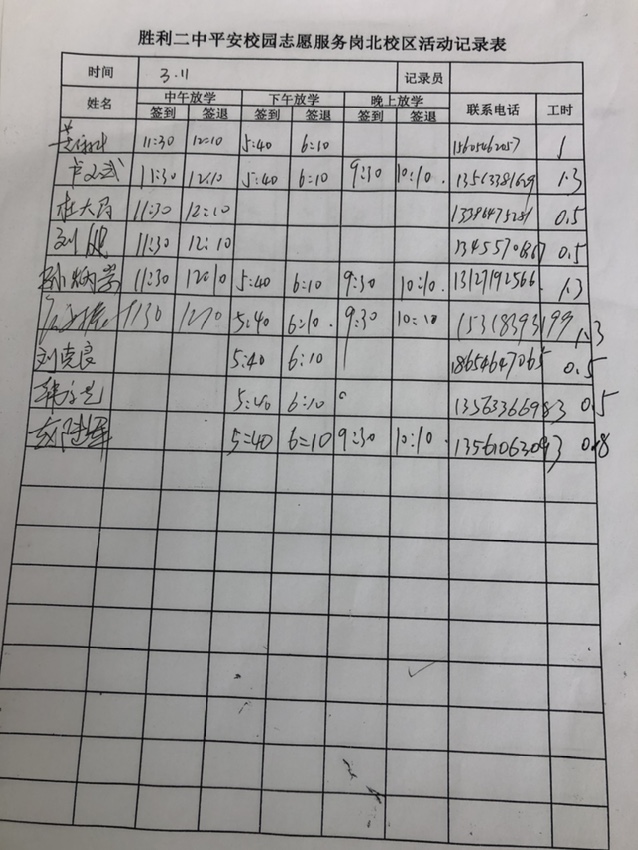 胜利二中平安校园志愿服务岗北校区活动记录表
时间 3.11 记录员
姓名 中午放学 下午放学 晚上放学 联系电话 工时
签到 签退 签到 签退 签到 签退
11:30 12:10 5:40 6:10 1
11:30 12:10 5:40 6:10 9:30 10:10. 1.3
杜大为 11:30 12:10 13396475281 0.5
刘健 11:30 12:10 1345570867 0.5
孙炳崇 11:30 12:10 5:40 6:10 9:30 10:10. 13127192566. 1.3
1130 1210 5:40 6:10. 9:30 10:10 15318393199 1.3
刘克良 5:40 6:10 18654647065 0.5
5:40 6:10 13563366983 0.5
5:40 6:10 9:30 10:10. 13561063093 0.8